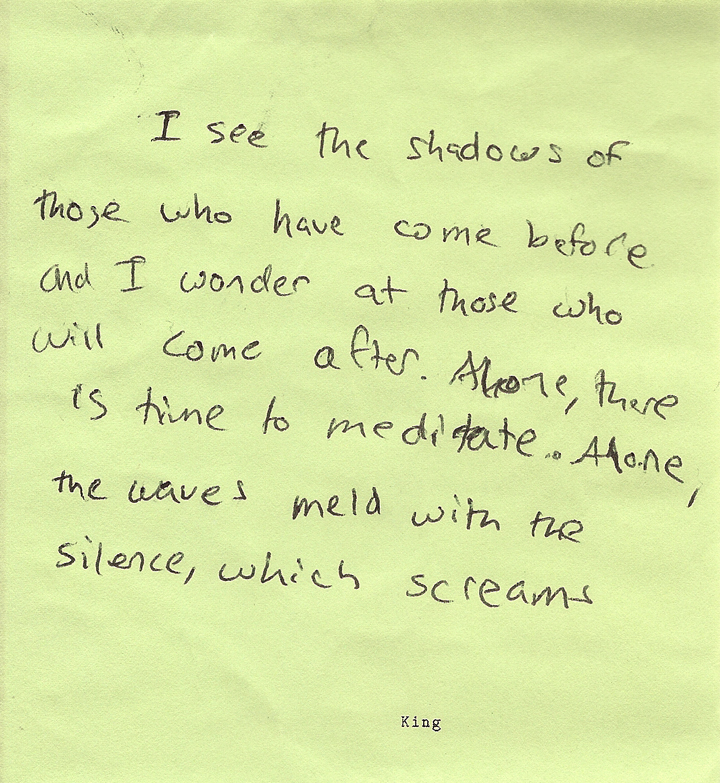 I see the shadows of
those who have come before
and I wonder at those who
will come after. Alone, there
is time to meditate.. Alone,
the waves meld with the
silence, which screams
King